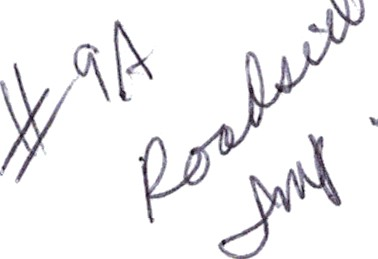 #9A
Roadside
Imp.